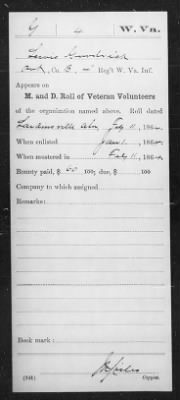 G 4 W. Va.
Lewis Goodrich
Co. B, 4 Reg't W. Va. Inf.
Appears on
M. and D. Roll of Veteran Volunteers
of the organization named above. Roll dated
Larkinsville Ala, Feb 11, 1864.
When enlisted Jan 1, 1864.
When mustered in Feb 11, 1864.
Bounty paid, $ 60 100; due, $ 100
Company to which assigned
Remarks:
Book mark:
(346) Copyist.